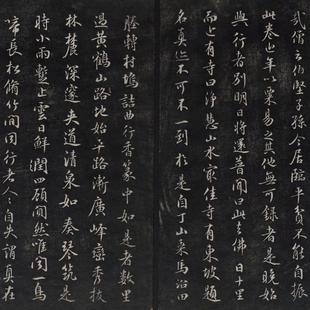 儒云仇賢子孫今居臨平貧不能自振
此卷近年以粟易之其他無可録者是晚始
與行者別明日將遂普聞曰此去佛日十里
而近有寺曰淨慧山水最佳寺有東坡題
名真迹不可不一到於是自丁山乘馬沿田
塍轉村塢詰曲行香篆中如是者數里
過黃鶴山路地始平路漸廣峰巒秀拔
林麓深邃夾道清泉如奏琴筑是
時小雨蹔止雲日鮮潤四顧闃然唯聞一鳥
啼長松脩竹間行者人人自失謂真在